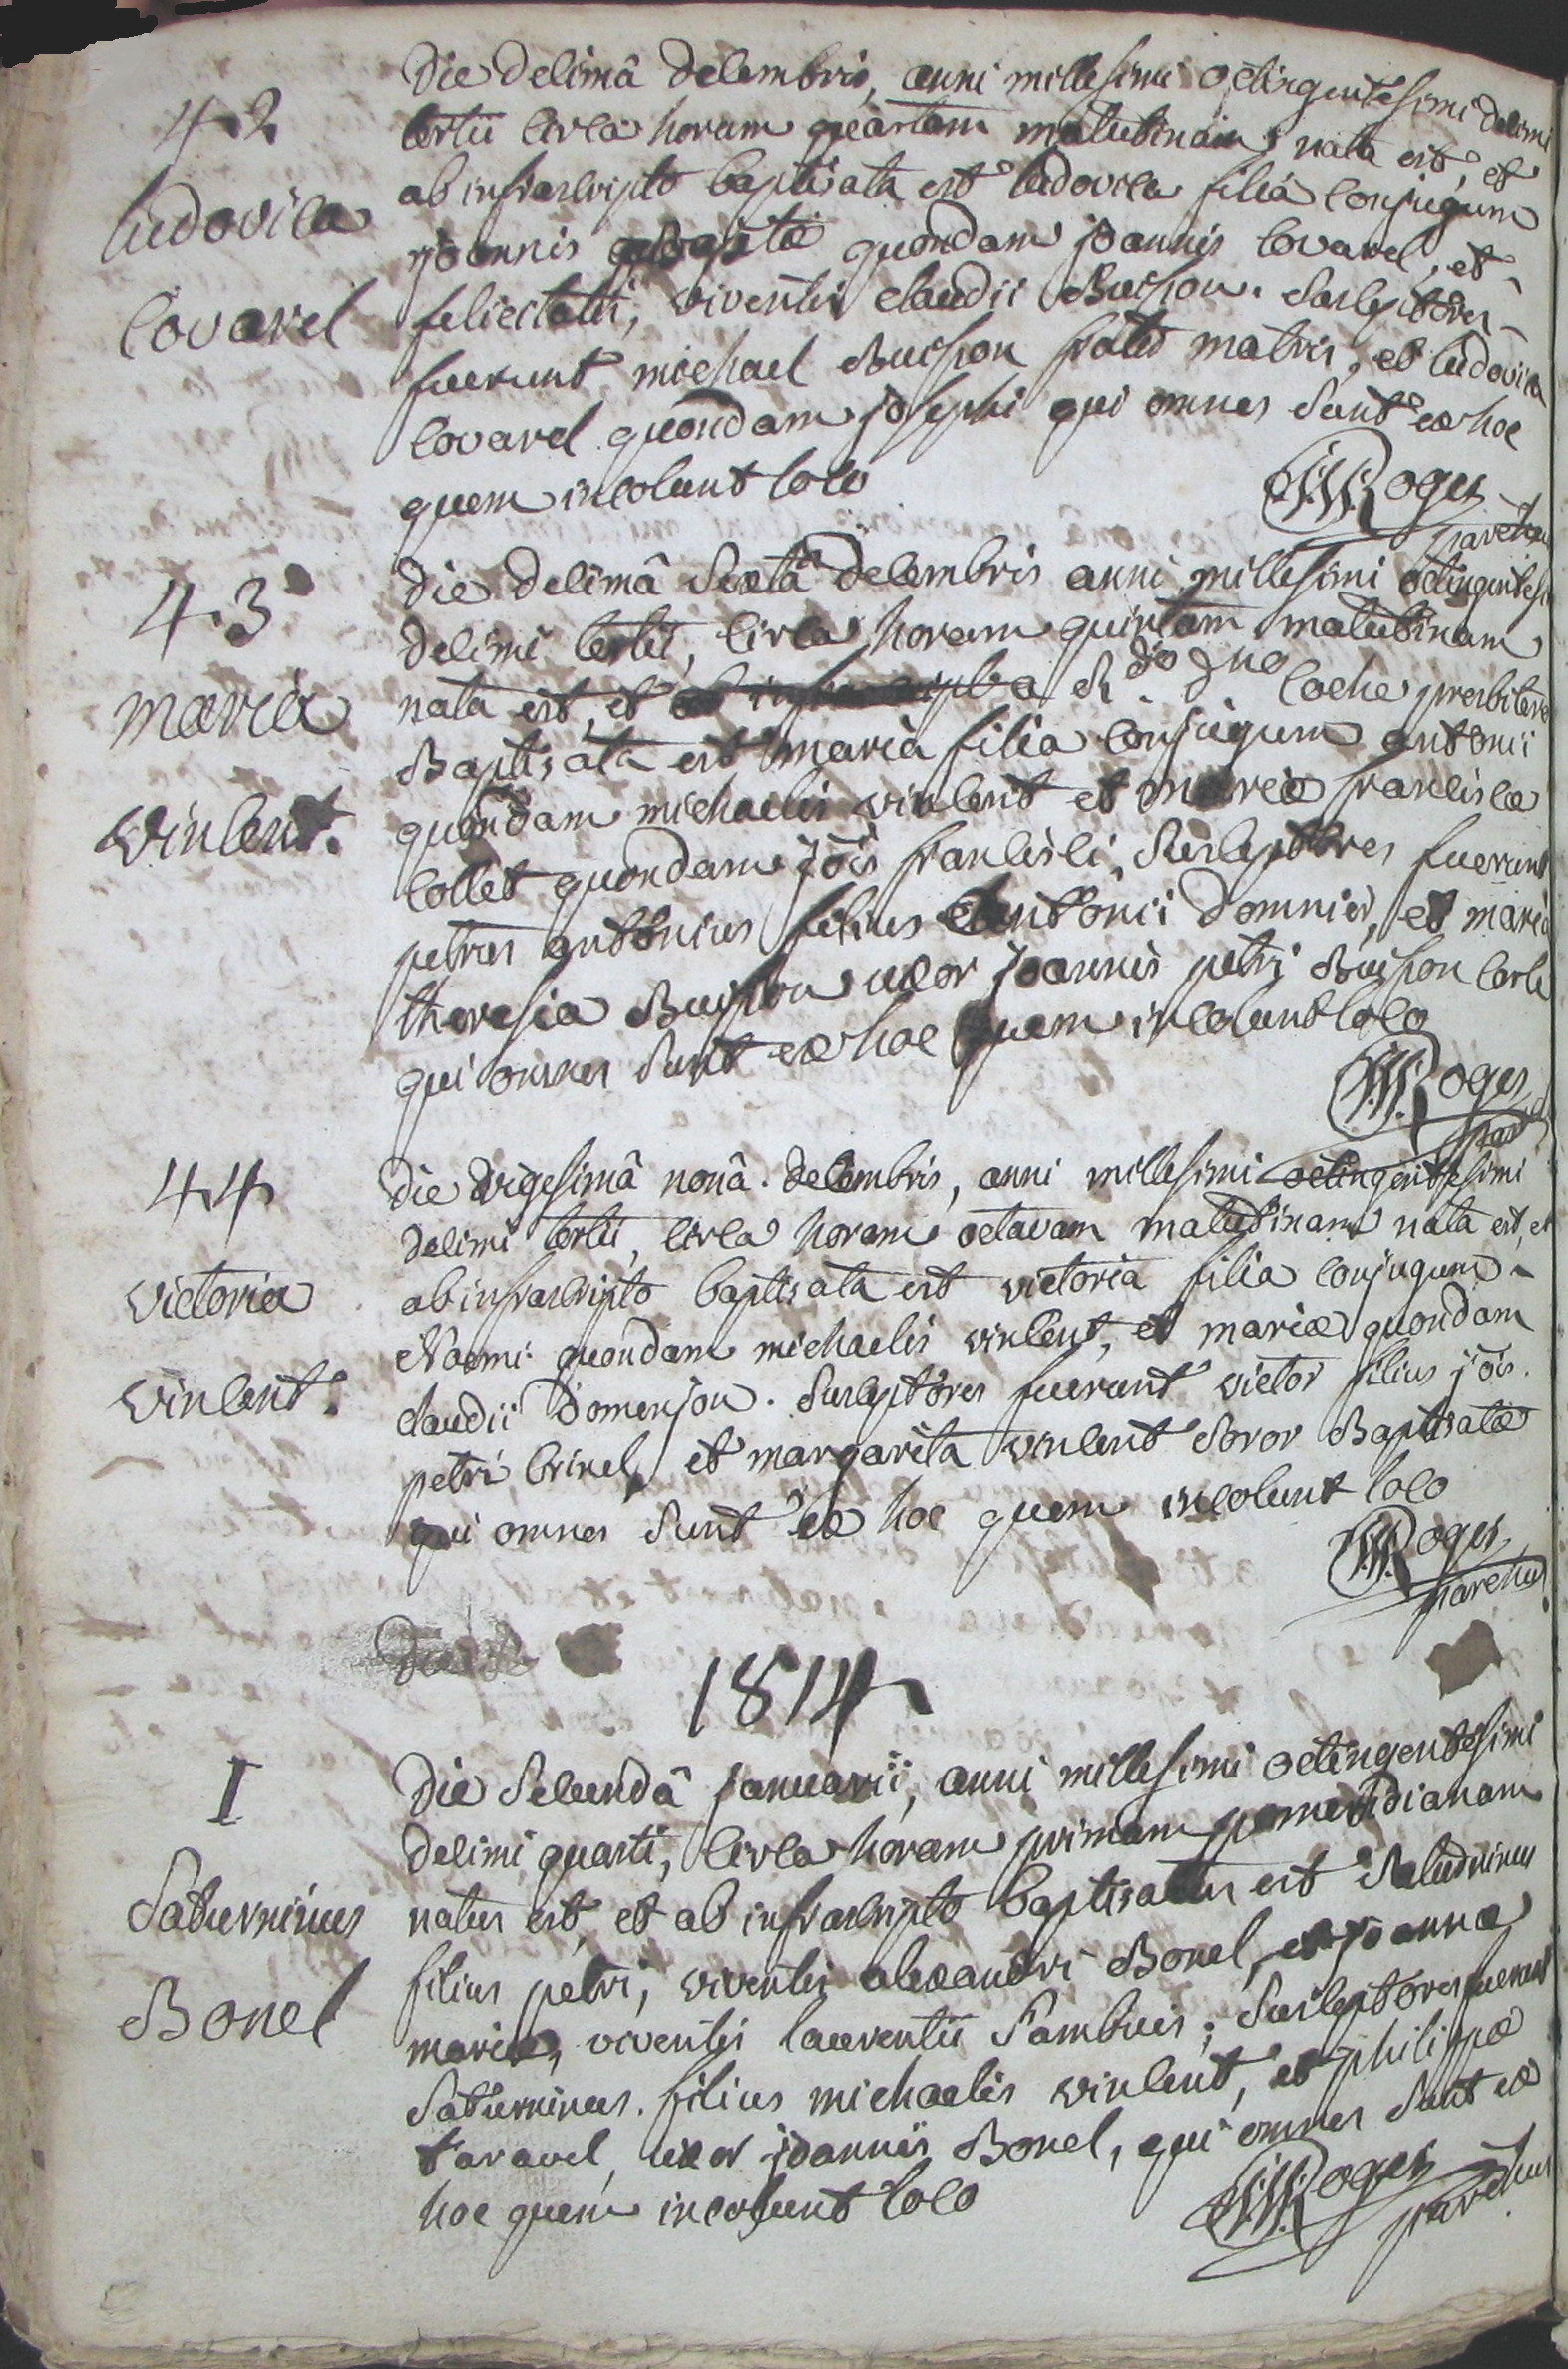 42
ludovica
covarel
Die decimâ decembris, anni millesimi octingentesimi decimi
tertii circa horam quartam matutinam nata est, et
ab infrascripto baptisata est ludovica filia conjugum
joannis quondam joannis covarel, et
felicitatis, viventis claudii Buisson. Susceptores
fuerunt michael Buisson frater matris, et ludovica
covarel quondam josephi qui omnes sunt ex hoc
quem incolunt loco
Roges
parochus
43
maria
vincent.
Die decimâ sextâ decembris anni millesimi octingentesi
decimi tertii, circa horam quintam matutinam
nata est, et ab infrascripto a Rdo Dno coche presbitero
Baptisata est maria filia conjugum antonii
quondam michaelis vincent et mariæ franciscæ
collet quondam jois francisci, Susceptores fuerunt
petrus antonius filius antonii Domnier, et maria
theresia Buisson uxor joannis petri Buisson
qui omnes sunt ex hoc quem incolunt loco
Roges
44
victoria
vincent.
Die vigesimâ nonâ. decembris, anni millesimi octingentesimi
decimi tertii, circa horam octavam matutinam nata est, et
ab infrascripto baptisata est victoria filia conjugum
Noemi quondam michaelis vincent, et mariæ quondam
claudii Domenjon. Susceptores fuerunt victor filius jois.
petri crinel, et margarita vincent soror Baptisatæ
qui omnes sunt ex hoc quem incolunt loco
Roges
parochus
1814
I
Saturninus
Bonel
Die secundâ januarii, anni millesimi octingentesimi
decimi quarti, circa horam primam pomeridianam
natus est, et ab infrascripto baptisatus est Saturninus
filius petri, viventis alexandri Bonel, et joannæ
mariæ, viventis laurentii Sambuis; Susceptores fuerunt
Saturninus. filius michaelis vincent, et philippæ
taravel, uxor joannis Bonel, qui omnes sunt ex
hoc quem incolunt loco
Roges
parochus